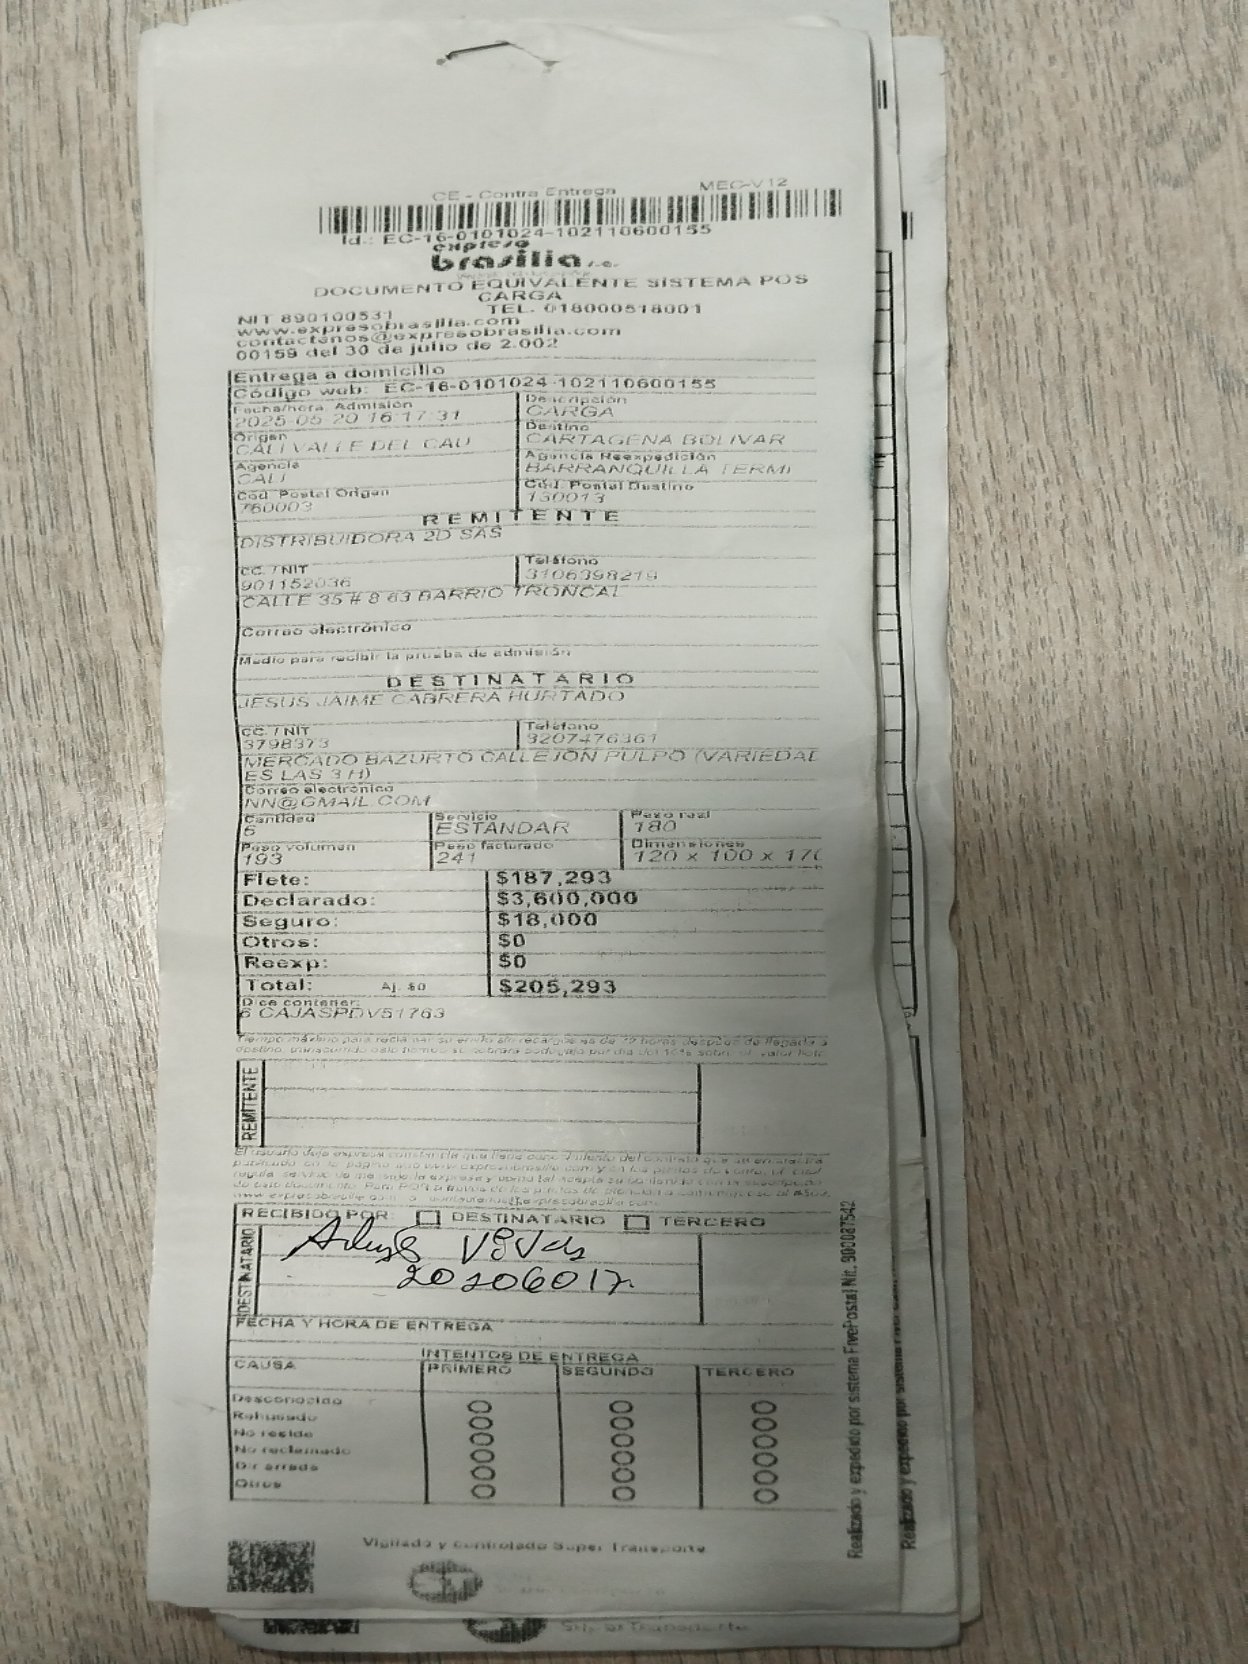 CE - Contra Entrega MEC-V12
Id.: EC-16-0101024-102110600155
expreso
brasilia s.a.
DOCUMENTO EQUIVALENTE SISTEMA POS
CARGA
NIT 890100531 TEL. 018000518001
www.expresobrasilia.com
contactenos@expresobrasilia.com
00159 del 30 de julio de 2.002
Entrega a domicilio
Código web: EC-16-0101024-102110600155
Fecha/hora Admisión Descripción
2025-05-20 16:17:31 CARGA
Origen Destino
CALI VALLE DEL CAU CARTAGENA BOLIVAR
Agencia Agencia Reexpedición
CALI BARRANQUILLA TERMI
Cód. Postal Origen Cód. Postal Destino
760003 130013
REMITENTE
DISTRIBUIDORA 2D SAS
CC. / NIT Teléfono
901152036 3106398219
CALLE 35 # 8 63 BARRIO TRONCAL
Correo electrónico
Medio para recibir la prueba de admisión
DESTINATARIO
JESUS JAIME CABRERA HURTADO
CC. / NIT Teléfono
3798373 3207476361
MERCADO BAZURTO CALLEJON PULPO (VARIEDAD
ES LAS 3 H)
Correo electrónico
NN@GMAIL.COM
Cantidad Servicio Peso real
6 ESTANDAR 180
Peso volumen Peso facturado Dimensiones
193 241 120 x 100 x 170
Flete: $187,293
Declarado: $3,600,000
Seguro: $18,000
Otros: $0
Reexp: $0
Total: Aj. $0 $205,293
Dice contener:
6 CAJASPDV51763
Tiempo máximo para reclamar su envío sin recargos es de 72 horas después de llegada a
REMITENTE
RECIBIDO POR: DESTINATARIO TERCERO
DESTINATARIO
20206017
FECHA Y HORA DE ENTREGA
INTENTOS DE ENTREGA
CAUSA PRIMERO SEGUNDO TERCERO
Desconocido
Rehusado
No reside
No reclamado
Dir errada
Otros
Vigilado y controlado Super Transporte
Realizado y expedido por sistema FivePostal Nit. 900087542
Realizado y expedido por sistema